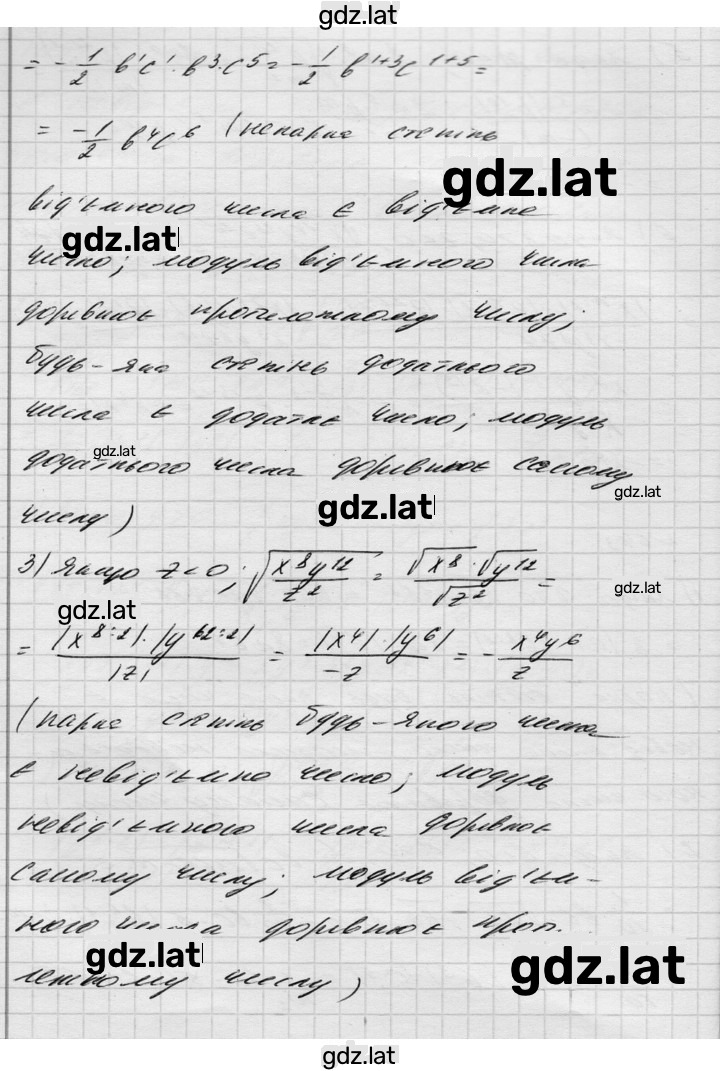 gdz.lat
= -1/2 b¹c¹·b³·c⁵ = -1/2 b¹⁺³c¹⁺⁵ =
= -1/2 b⁴c⁶ (непарна степінь
gdz.lat
від'ємного числа є від'ємне
gdz.lat
число; модуль від'ємного числа
дорівнює протилежному числу;
будь-яка степінь додатнього
числа є додатнє число; модуль
gdz.lat
додатнього числа дорівнює самому
gdz.lat
gdz.lat
числу)
3) Якщо z<0; √(x⁸y¹²/z²) = √x⁸·√y¹²/√z² =
gdz.lat
gdz.lat
= |x⁸:²|·|y¹²:²|/|z| = |x⁴|·|y⁶|/-z = -x⁴y⁶/z
(парна степінь будь-якого числа
є невід'ємне число; модуль
невід'ємного числа дорівнює
самому числу; модуль від'єм-
ного числа дорівнює прот.
gdz.lat
gdz.lat
лежному числу)
gdz.lat